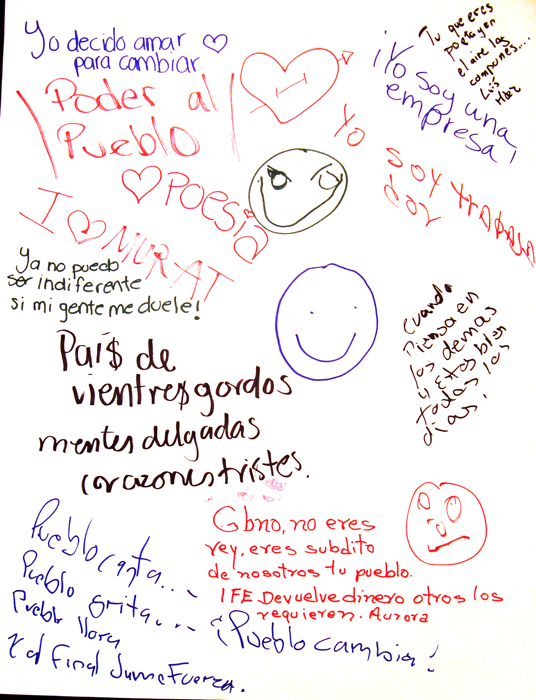 Yo decido amar
para cambiar
Tu que eres
poeta y en
el aire las
compones...
¡Yo soy una
empresa!
Poder al
Pueblo
Yo soy trabaja
dor
POESIA
I ♡ MURAT
Ya no puedo
ser indiferente
si mi gente me duele!
Cuando
piensa en
los demas
y estos bien
todos los
dias!
Pai$ de
vientre$ gordos
mentes delgadas
corazones tristes.
Gbno, no eres
rey, eres subdito
de nosotros tu pueblo.
IFE Devuelve dinero otros los
requieren. Aurora
Pueblo canta...
Pueblo grita...
Pueblo llora
¡Pueblo cambia!
y al final Sume Fuerza.